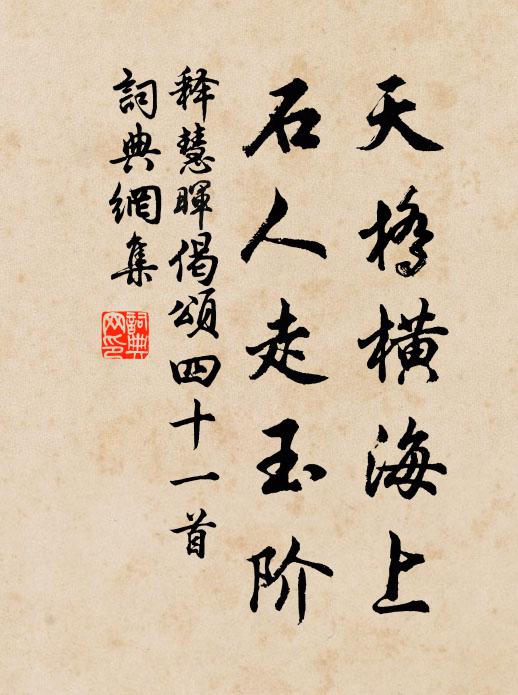 天桥横海上
石人走玉阶
释慧晖偈颂四十一首
词典網集
詞典网印